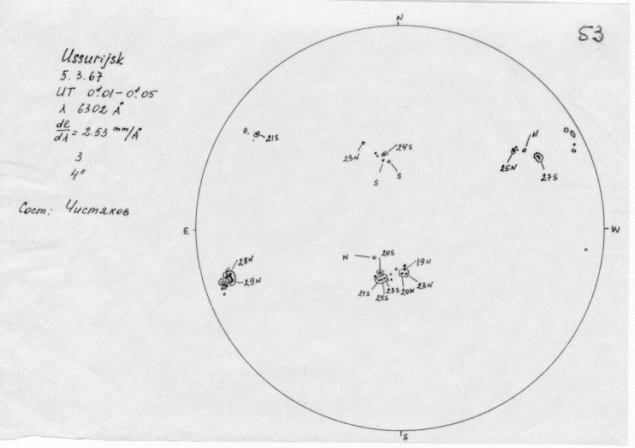 53
Ussurijsk
5. 3. 67
UT 0ᵈ.01 – 0ᵈ.05
λ 6302 Å
dl/dλ = 2.53 mm/Å
3
4"
Сост: Чистяков
N
E
W
S
21S
23N
24S
S S
N
25N
27S
28N
29N
N
20S
19N
21S
25S
23S
20N
23N